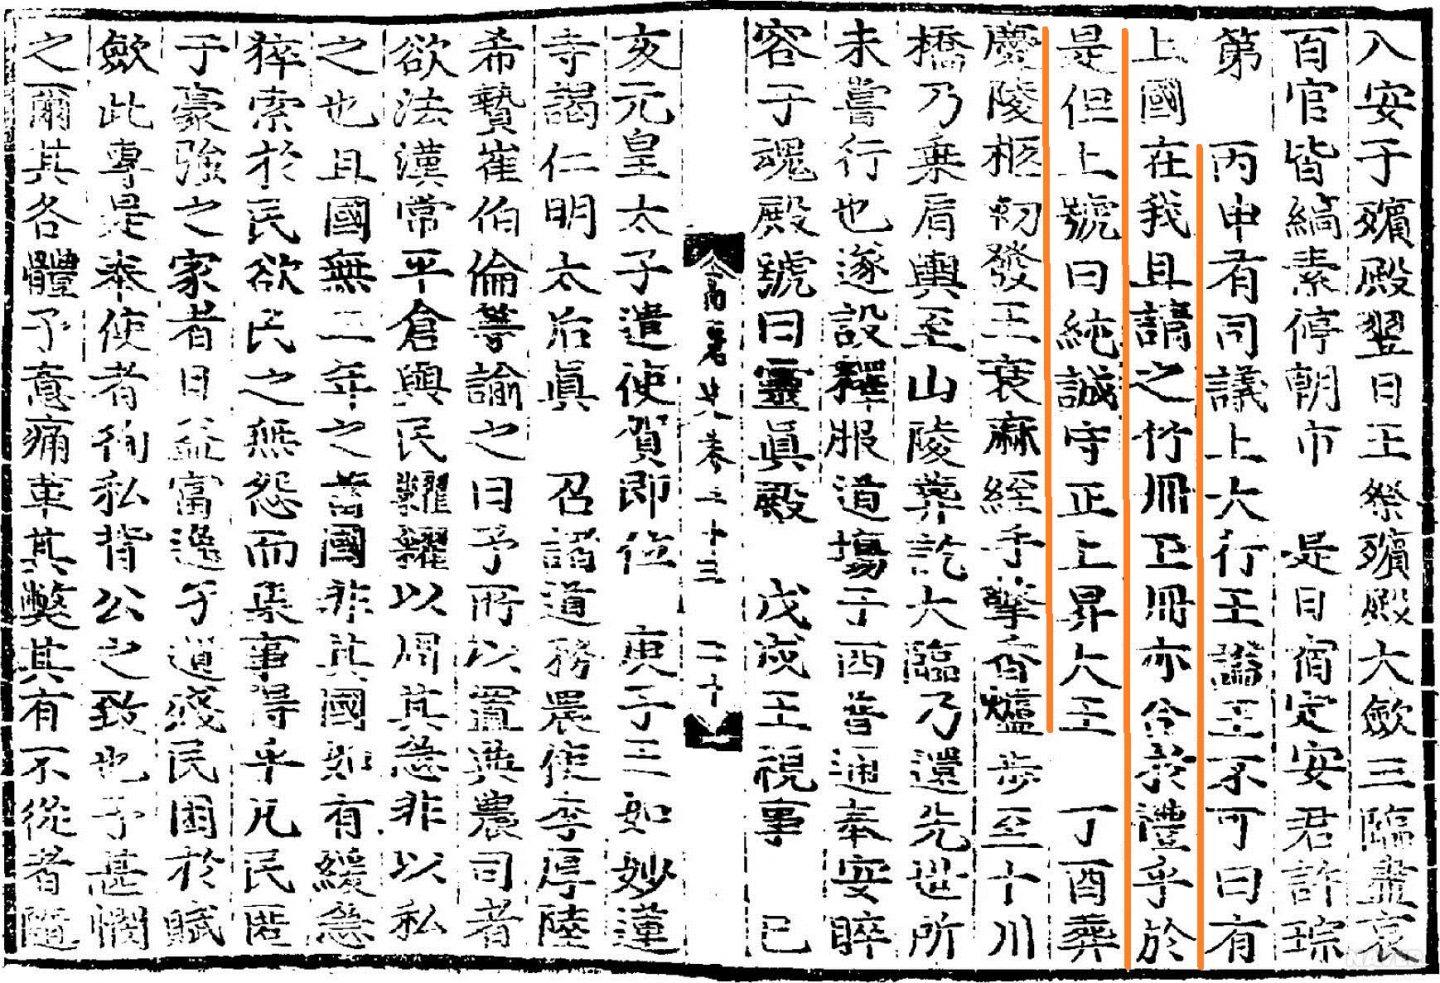 八安于殯殿翌日王祭殯殿大斂三臨盡哀
百官皆縞素停朝市 是日宿定安君許琮
第 丙申有司議上大行王諡王不可曰有
上國在我且請之竹冊玉冊亦合於禮乎於
是但上號曰純誠守正上昇大王 丁酉葬
慶陵柩初發王衰麻絰手擎香爐步至十川
橋乃乘肩輿至山陵葬訖大臨乃還先世所
未嘗行也遂設釋服道場于西普通奉安睟
容于魂殿號曰靈眞殿 戊戌王視事 已
高麗史卷三十三 二十
亥元皇太子遣使賀即位 庚子王如妙蓮
寺謁仁明太后眞 召諸道務農使李厚陸
希贄崔伯倫等諭之曰予所以置典農司者
欲法漢常平倉與民糶糴以周其急非以私
之也且國無三年之蓄國非其國如有緩急
猝索於民欲民之無怨而集事得乎凡民匿
于豪強之家者日益富逸 道殘民困於賦
斂此專是奉使者徇私背公之致也予甚憫
之爾其各體予意痛革其弊其有不從者隨